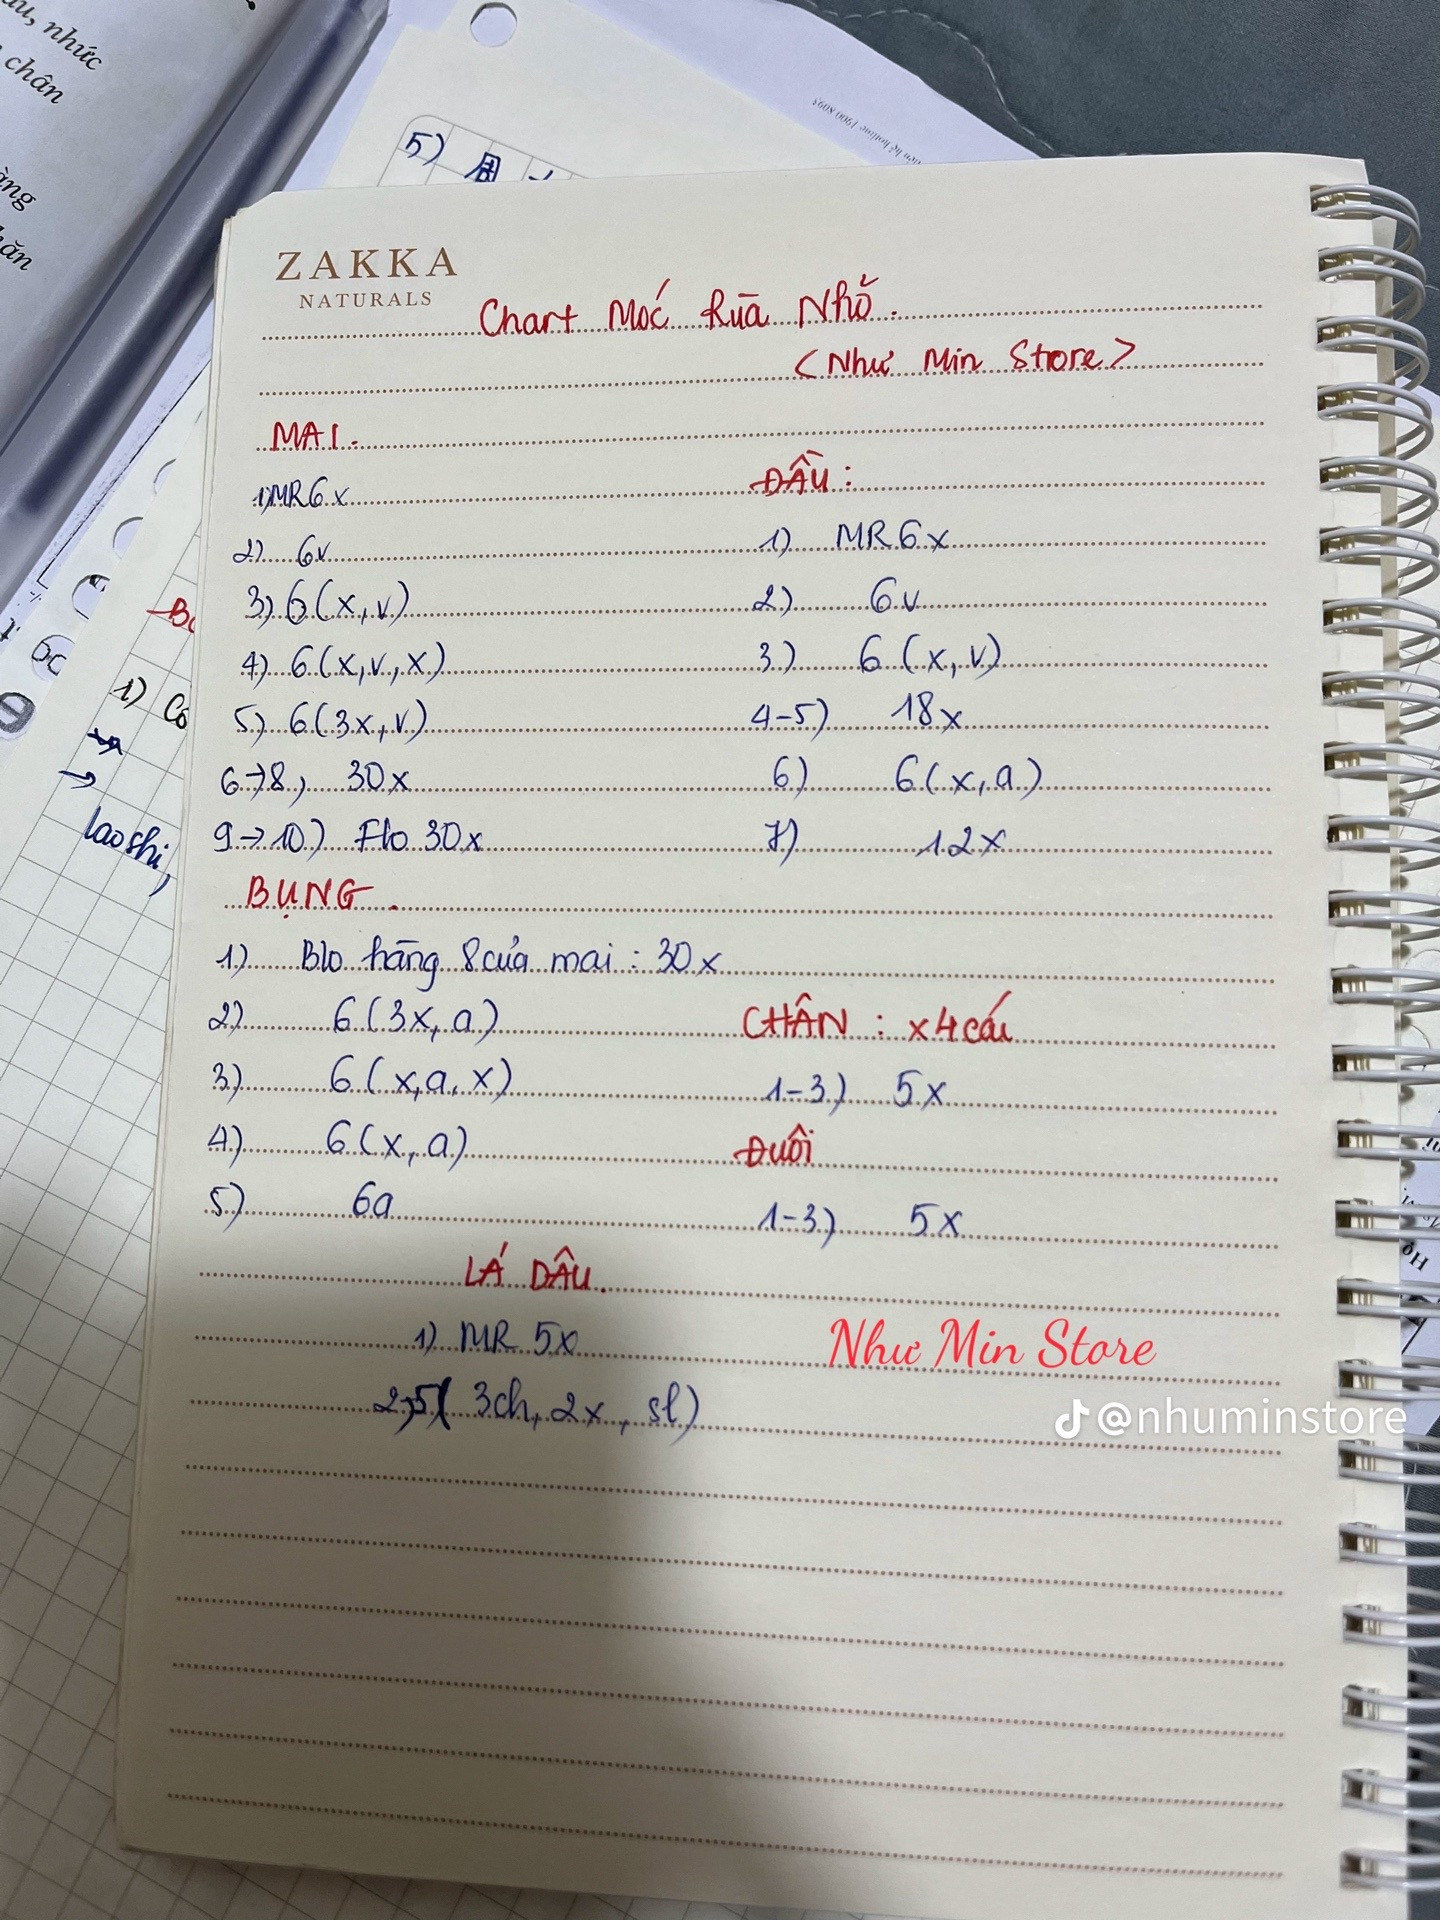 ầu, nhức
chân
àng
hăn
5)
liên hệ hotline 1900 8095
ZAKKA
NATURALS
Chart Móc Rùa Nhỏ.
<Như Min Store>
MAI.
1) MR 6x
2) 6v
3) 6(x,v)
4) 6(x,v,x)
5) 6(3x,v)
6→8, 30x
9→10) Flo 30x
ĐẦU:
1) MR 6x
2) 6v
3) 6(x,v)
4-5) 18x
6) 6(x,a)
7) 12x
BỤNG.
1) Blo hàng 8 của mai: 30x
2) 6(3x,a)
3) 6(x,a,x)
4) 6(x,a)
5) 6a
CHÂN: x4 cái
1-3) 5x
ĐUÔI
1-3) 5x
LÁ DÂU.
1) MR 5x
2) 5(3ch, 2x, sl)
Như Min Store
@nhuminstore
1) Có
→
laoshi,